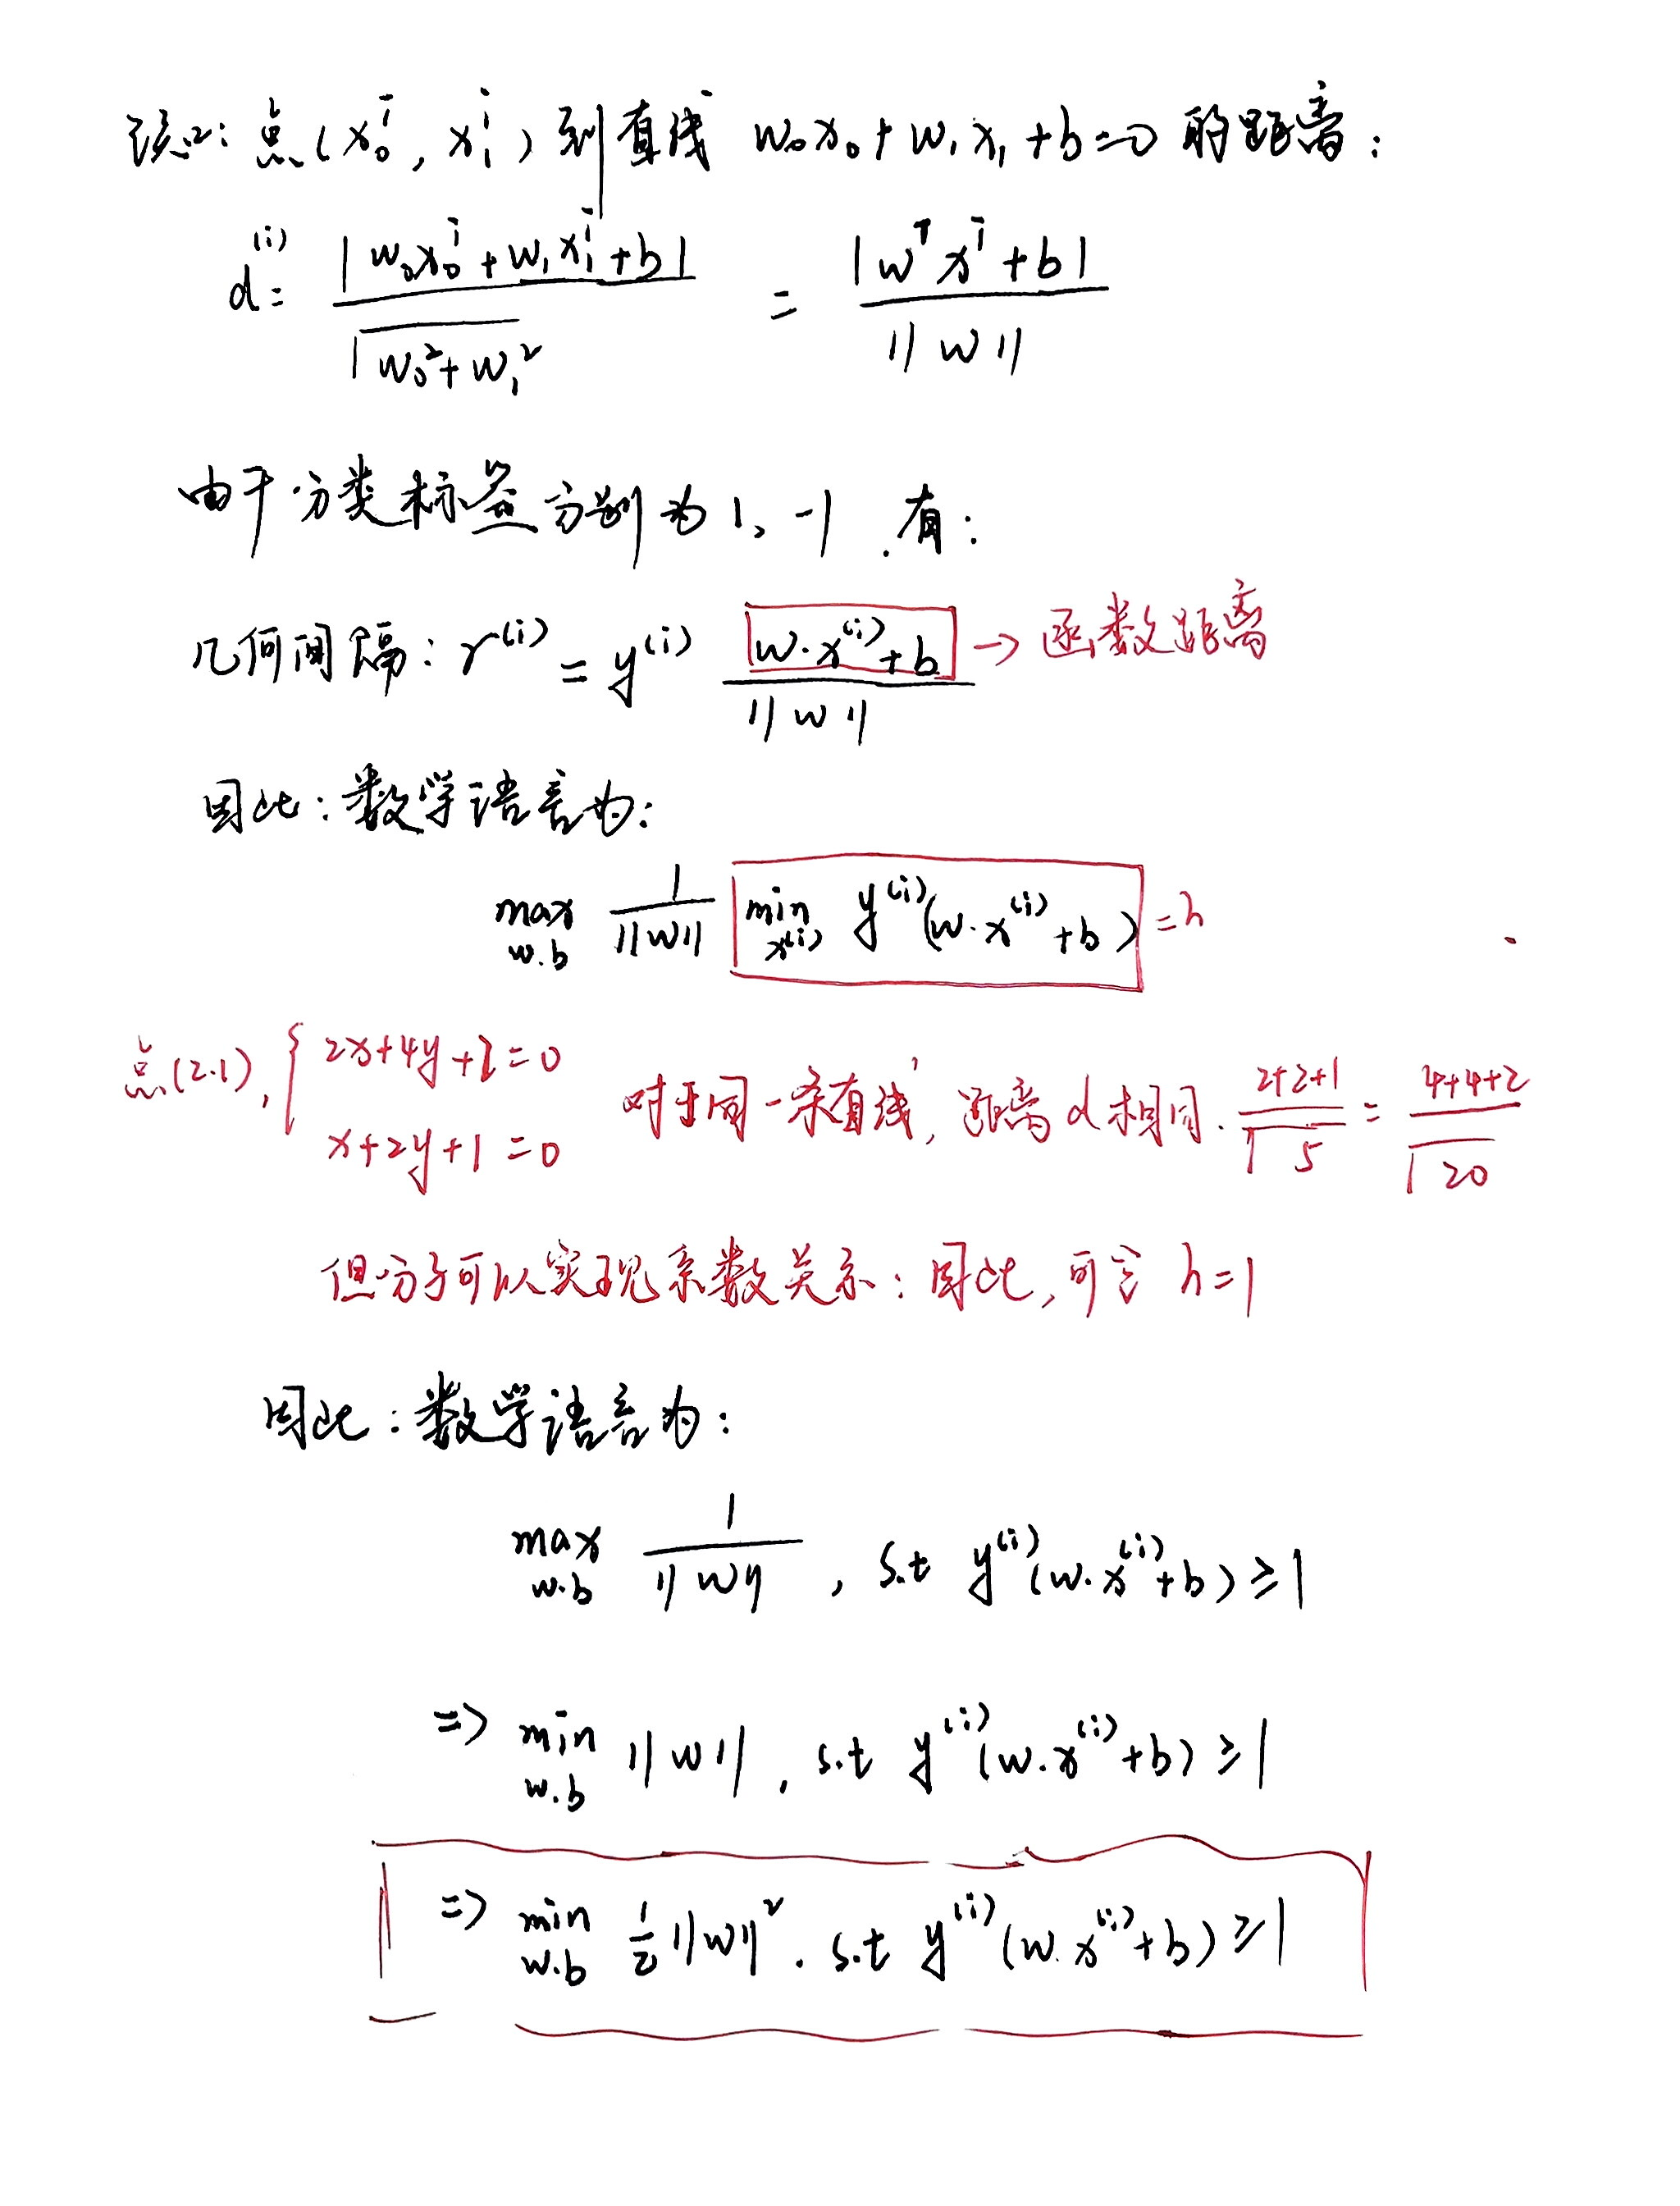 点(x₀ⁱ, x₁ⁱ)到直线 w₀x₀+w₁x₁+b=0 的距离:
d⁽ⁱ⁾= |w₀x₀ⁱ+w₁x₁ⁱ+b| / √(w₀²+w₁²) = |wᵀxⁱ+b| / ||w||
由于分类标签分别为1、-1.有:
几何间隔: γ⁽ⁱ⁾ = y⁽ⁱ⁾ (w·x⁽ⁱ⁾+b) / ||w|| → 函数距离
因此:数学语言为:
max w.b 1/||w|| min x⁽ⁱ⁾ y⁽ⁱ⁾(w·x⁽ⁱ⁾+b) =h
点(2.1), { 2x+4y+2=0
x+2y+1=0
对于同一条直线,距离d相同. (2+2+1)/√5 = (4+4+2)/√20
但分子可以实现系数关系:因此,可令 h=1
因此:数学语言为:
max w.b 1/||w|| , s.t y⁽ⁱ⁾(w·x⁽ⁱ⁾+b)≥1
=> min w.b ||w|| , s.t y⁽ⁱ⁾(w·x⁽ⁱ⁾+b)≥1
=> min w.b ½||w||² . s.t y⁽ⁱ⁾(w·x⁽ⁱ⁾+b)≥1